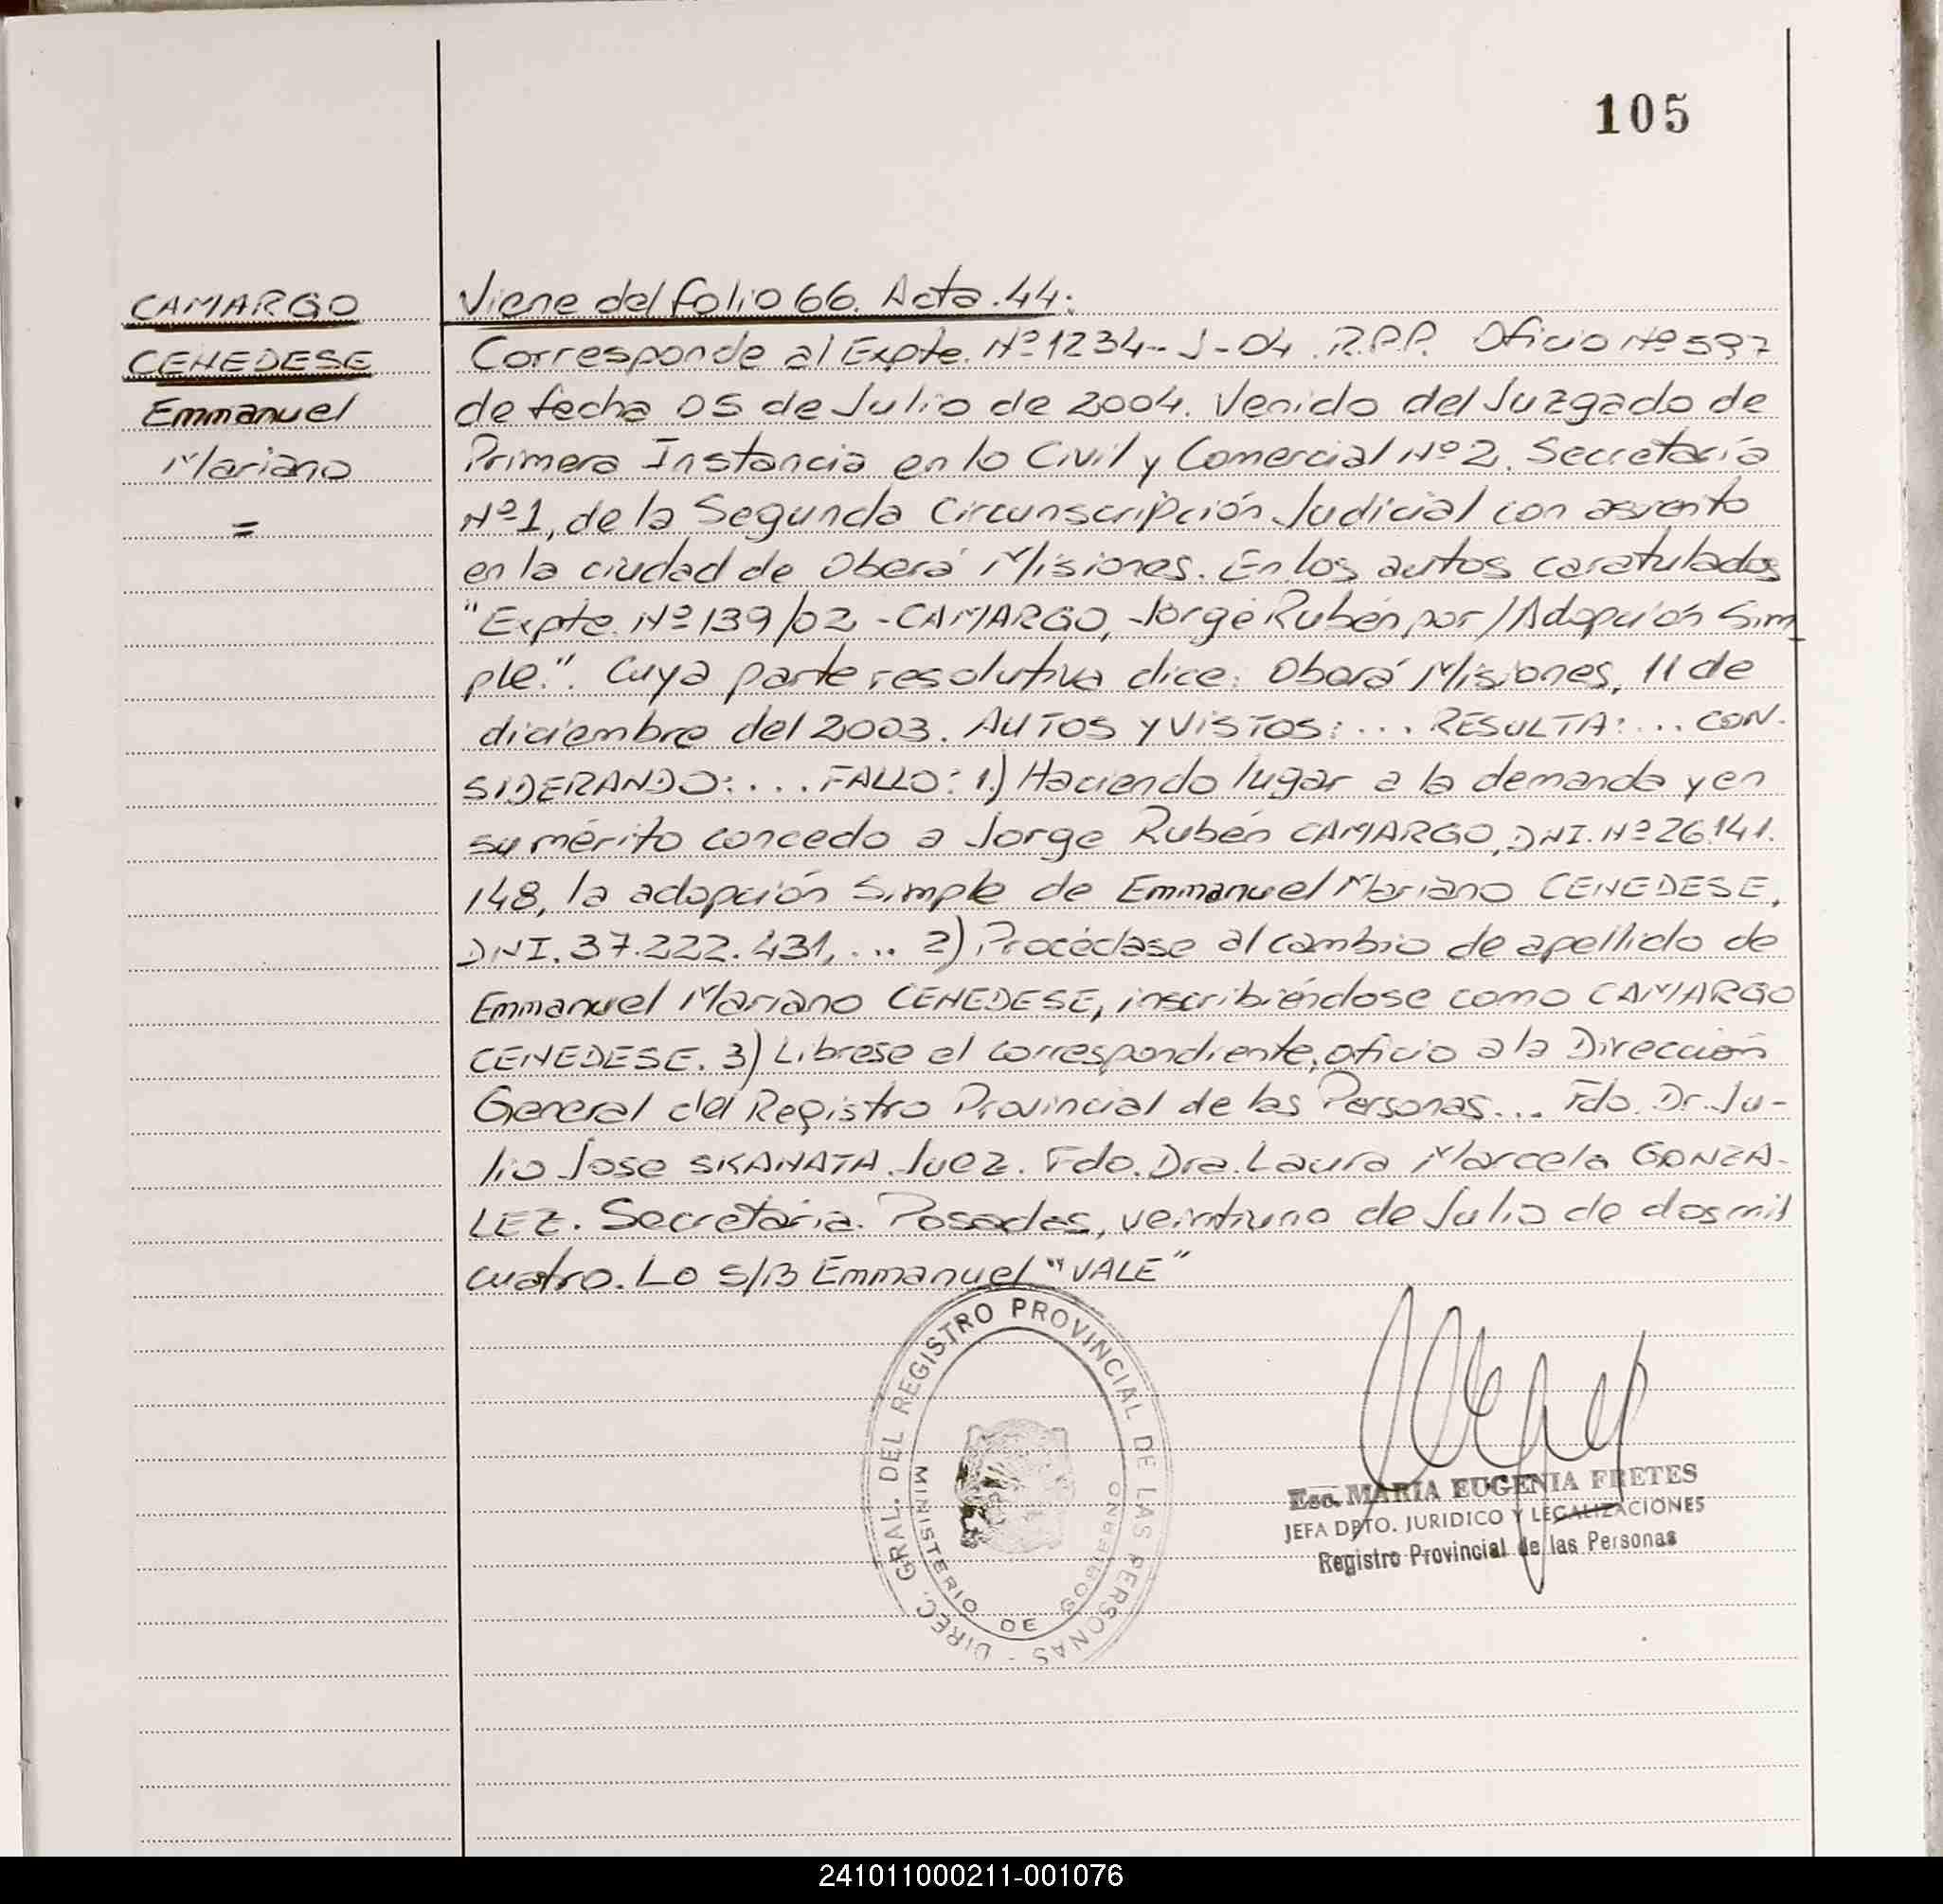 105
CAMARGO
CENEDESE
Emmanuel
Mariano
=
Viene del folio 66. Acta. 44:
Corresponde al Expte. Nº 1234-J-04. R.P.P. Oficio Nº 597
de fecha 05 de Julio de 2004. Venido del Juzgado de
Primera Instancia en lo Civil y Comercial Nº 2. Secretaría
Nº 1, de la Segunda Circunscripción Judicial con asiento
en la ciudad de Oberá Misiones. En los autos caratulados
"Expte. Nº 139/02 - CAMARGO, Jorge Rubén por/Adopción Sim
ple.". Cuya parte resolutiva dice: Oberá Misiones, 11 de
diciembre del 2003. AUTOS Y VISTOS: ... RESULTA: ... CON-
SIDERANDO: ... FALLO: 1.) Haciendo lugar a la demanda y en
su mérito concedo a Jorge Rubén CAMARGO, DNI. Nº 26.141.
148, la adopción Simple de Emmanuel Mariano CENEDESE,
DNI. 37.222.431, ... 2) Procédase al cambio de apellido de
Emmanuel Mariano CENEDESE, inscribiéndose como CAMARGO
CENEDESE. 3) Librese el correspondiente, oficio a la Dirección
General del Registro Provincial de las Personas... Fdo. Dr. Ju-
lio Jose SKANATA. Juez. Fdo. Dra. Laura Marcela GONZA-
LEZ. Secretaria. Posadas, veintiuno de Julio de dos mil
cuatro. Lo S/B Emmanuel "VALE"
DIREC. GRAL. DEL REGISTRO PROVINCIAL DE LAS PERSONAS -
MINISTERIO DE GOBIERNO
Esc. MARIA EUGENIA FRETES
JEFA DPTO. JURIDICO Y LEGALIZACIONES
Registro Provincial de las Personas
241011000211-001076